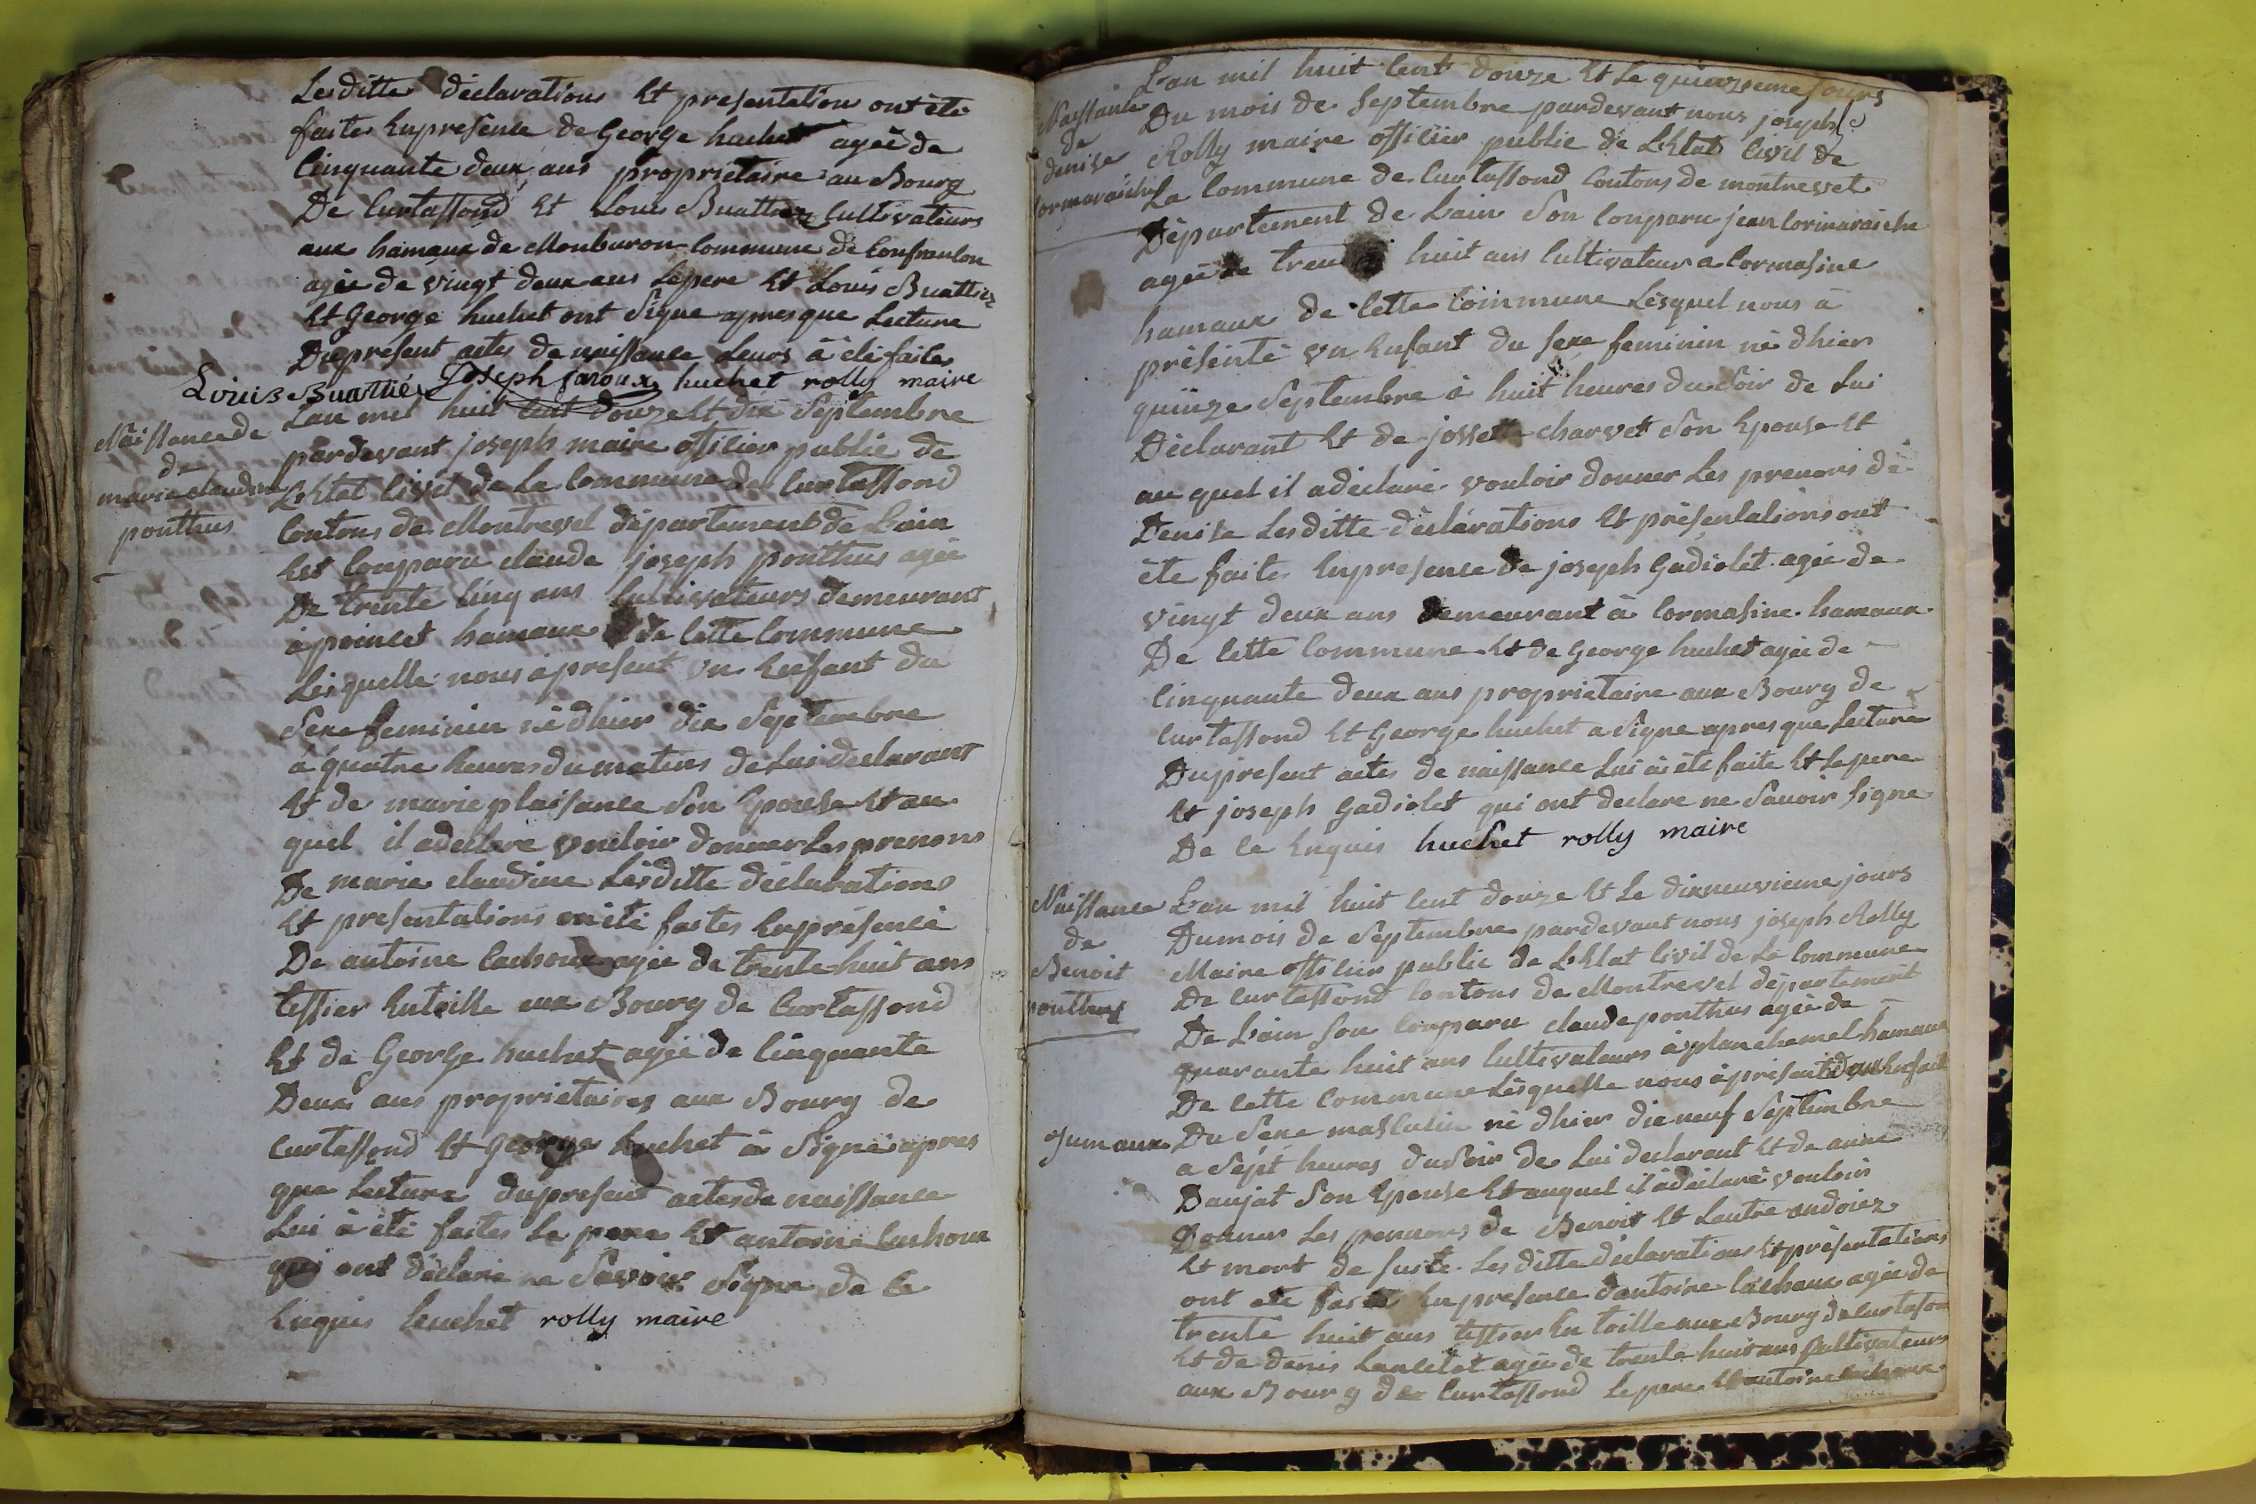 Les ditte déclarations Et presentation ont été
faites Enpresence de George huchet agée de
Cinquante deux ans propriétaire au Bourg
De Curtassond Et Louis Buattier Cultivateurs
aux hamaux de Monburon Commune de Confranson
agée de vingt deux ans Lepere Et Louis Buattier
Et George huchet ont Signe apresque Lecture
Dupresent actes de naissance Leuos à été faites
Louis Buattié Joseph faroux huchet rolly maire
Naissance de
de
marie claudine
ponthus
Lan mil huit Cent douze Et dix Septembre
pardevant joseph maire officier public de
LEtat Civil de La Commune de Curtassond
Contons de Montrevel département de Lain
Est Conparu claude joseph ponthus agée
De trente Cinq ans Cultivateurs demeurant
à poincet hamaux de Cette Commune
Lesquelle nous apresent un Enfant du
Sexe feminin né dhier dix Septembre
à quatre heures du matins de Lui declarant
Et de marie plaisance Son Epouse Et au
quel il adeclare vouloir donner Les prenons
De marie claudine Lesditte déclarations
Et presentations onété faites Enpresence
De antoine Cachoux agée de trente huit ans
tessier Entoille aux Bourg de Curtassond
Et de George huchet agée de Cinquante
Deux ans proprietaires aux Bourg de
Curtassond Et George huchet à Signé apres
que Lecture dupresent actes de naissance
Lui à été faites Le pere Et antoine Cachoux
qui ont déclare ne Savoir Signe de Ce
Enquis huchet rolly maire
Naissance
de
denise
Cormaraiche
Lan mil huit Cent douze Et Le quinzieme jours
Du mois de Septembre pardevant nous joseph
Rolly maire officier public de LEtat Civil de
La Commune de Curtassond Contons de montrevel
Département de Lain Son Conparu jean Cormaraiche
agée de trente huit ans Cultivateur a Cormasine
hamaux de Cette Commune Lesquel nous à
présenté un Enfant du Sexe feminin né dhier
quinze Septembre à huit heures du Soir de Lui
Déclarant Et de josette charvet Son Epouse Et
au quel il adéclaré vouloir donner Les prenons de
Denise Lesditte déclarations Et présentations ont
été faites Enpresence de joseph Gadiolet agée de
vingt deux ans demeurant à Cormasine hamaux
De Cette Commune Et de George huchet agée de
Cinquante deux ans proprietaire aux Bourg de
Curtassond Et George huchet a Signe apres que Lecture
Dupresent actes de naissance Lui àété faite Et Lepere
Et joseph Gadiolet qui ont declare ne Savoir Signe
De Ce Enquis huchet rolly maire
Naissance
de
Benoit
ponthus
Lan mil huit Cent douze Et Le dixneuvieme jours
Dumois de Septembre pardevant nous joseph Rolly
Maire officier public de LEtat Civil de La Commune
De Curtassond Contons de Montrevel département
De Lain Son Conparu claude ponthus agée de
quarante huit ans Cultivateurs à planchemel hamaux
De Cette Commune Lesquelle nous àprésenté deux Enfant
Jumaux Du Sexe masculin né dhier dixneuf Septembre
a Sept heures duSoir de Lui declarant Et de anne
Daujat Son Epouse Et auquel il àdéclaré vouloir
Donner Les prenons de Benoit Et Lautre ondoiez
Et mort de Suite Lesditte déclarations Et présentations
ont été faite Enpresence dantoine Cachoux agée de
trente huit ans tessier En toille aux Bourg de Curtason
Et de denis Lancelot agée de trente huit ans Cultivateurs
aux Bourg de Curtassond Lepere Et antoine Cachoux